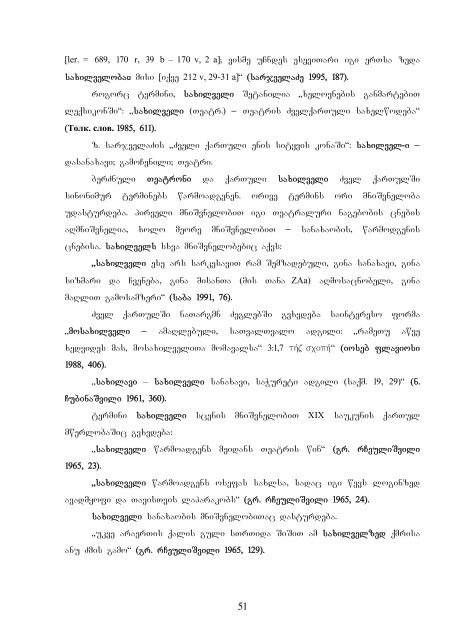 [ler. = 689, 170 r, 39 b – 170 v, 2 a]; ვისმე უჩნდეს ესევითარი იგი ერთსა ზედა
სახილველობაჲ მისი [იქვე 212 v, 29-31 a]“ (სარჯველაძე 1995, 187).
როგორც ტერმინი, სახილველი შეტანილია „ხელოვნების განმარტებით
ლექსიკონში“: „სახილველი (თეატრ.) – თეატრის ძველქართული სახელწოდება“
(Толк. слов. 1985, 611).
ზ. სარჯველაძის „ძველი ქართული ენის სიტყვის კონაში“: სახილველ-ი –
დასანახავი; გამოჩენილი; თეატრი.
ბერძნული თეატრონი და ქართული სახილველი ძველ ქართულში
სინონიმურ ტერმინებს წარმოადგენენ. ორივე ტერმინს ორი მნიშვნელობა
უდასტურდება. პირველი მნიშვნელობით იგი თეატრალური ნაგებობის ცნების
აღმნიშვნელია, ხოლო მეორე მნიშვნელობით – სანახაობის, წარმოდგენის
ცნებისა. სახილველს სხვა მნიშვნელობებიც აქვს:
„სახილველი ესე არს სარკესავით რამ შემზადებული, გინა სანახავი, გინა
სიზმარი და ჩვენება, გინა მისანთა (მის თანა ZAa) აღმოსაცნობელი, გინა
მაღლით გამოსამზერი“ (საბა 1991, 76).
ძველ ქართულში ნათარგმნ ძეგლებში გვხვდება საინტერესო ფორმა
„მოსახილველი – ამაღლებული, სათვალთვალო ადგილი: „რამეთუ აწვე
ხედვიდეს მას, მოსახილველითა მომავალსა“ 3:1,7 τῆζ σχοπῆ“ (იოსებ ფლავიოსი
1988, 406).
„სახილავი – სახილველი სანახავი, საჭურეტი ადგილი (საქმ. 19, 29)“ (ნ.
ჩუბინაშვილი 1961, 360).
ტერმინი სახილველი სცენის მნიშვნელობით XIX საუკუნის ქართულ
მწერლობაშიც გვხვდება:
„სახილველი წარმოადგენს მეიდანს თეატრის წინ“ (გრ. რჩეულიშვილი
1965, 23).
„სახილველი წარმოადგენს ოსეფას სახლსა, სადაც იგი წევს ლოგინზედ
ავადმყოფი და თავისთვის ლაპარაკობს“ (გრ. რჩეულიშვილი 1965, 24).
სახილველი სანახაობის მნიშვნელობითაც დასტურდება.
„უკვე არაერთის ქალის გული სთრთიდა შიშით ამ სახილველზედ ქმრისა
ანუ ძმის გამო“ (გრ. რჩეულიშვილი 1965, 129).
51